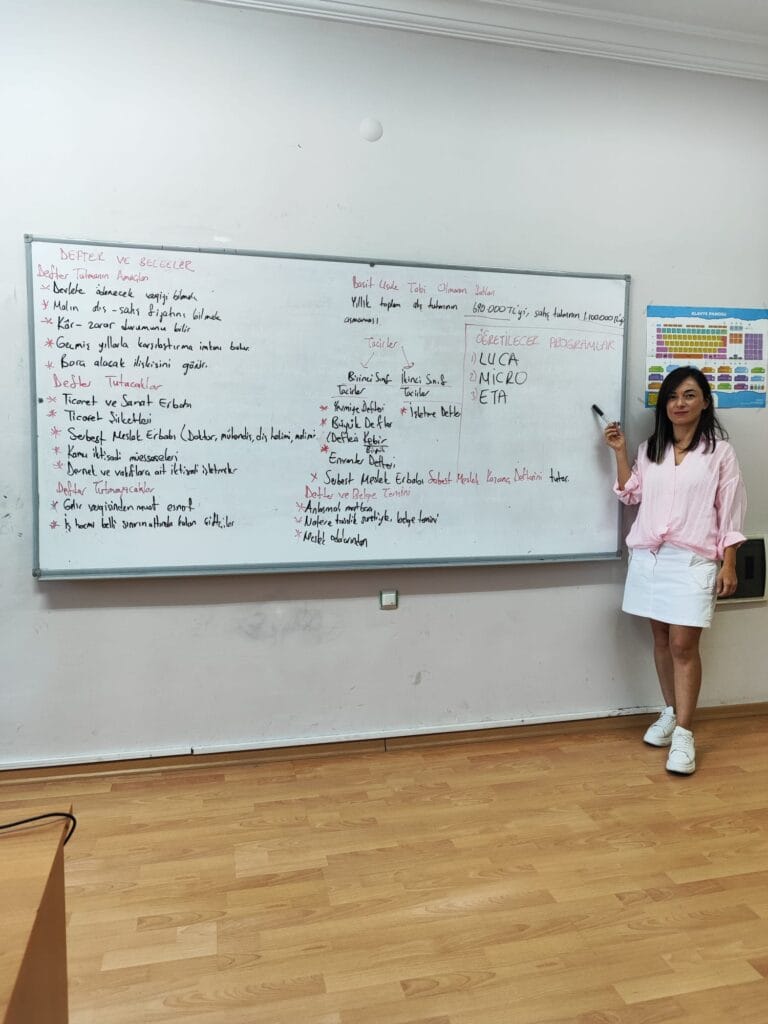 DEFTER VE BELGELER
Defter Tutmanın Amaçları
* Devlete ödenecek vergiyi bilmek
* Malın alış-satış fiyatını bilmek
* Kâr-zarar durumunu bilir
* Geçmiş yıllarla karşılaştırma imkanı bulur.
* Borç alacak ilişkisini görür.
Defter Tutacaklar
* Ticaret ve Sanat Erbabı
* Ticaret Şirketleri
* Serbest Meslek Erbabı (Doktor, mühendis, diş hekimi, malimü
* Kamu iktisadi müesseseleri
* Dernek ve vakıflara ait iktisadi işletmeler
Defter Tutmayacaklar
* Gelir vergisinden muaf esnaf
* İş hacmi belli sınırın altında kalan Çiftçiler
Basit Usule Tabi Olmanın Şartları
Yıllık toplam alış tutarının 690.000 TL'yi, satış tutarının 1.100.000 TL'yi
aşmaması.
Tacirler
Birinci Sınıf Tacirler
* Yevmiye Defteri
* Büyük Defter
(Defteri Kebir)
Envanter Defteri
İkinci Sınıf Tacirler
* İşletme Defteri
* Serbest Meslek Erbabı Serbest Meslek Kazanç Defterini tutar.
Defter ve Belge Temini
* Anlaşmalı matbaa
* Notere tasdik suretiyle, belge temini
* Meslek odalarından
ÖĞRETİLECEK PROGRAMLAR
1) LUCA
2) MİCRO
3) ETA
KLAVYE PANOSU